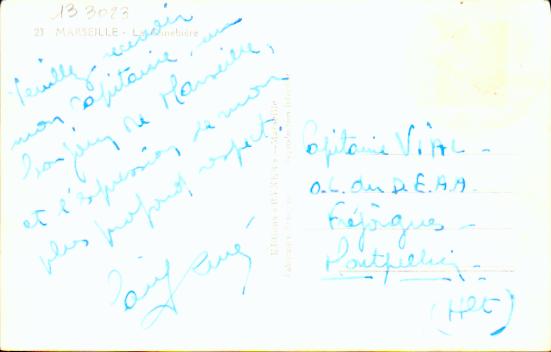 13 3023
23 MARSEILLE - La Canebière
Veuillez recevoir
mon Capitaine, un
bonjour de Marseille,
et l'expression de mon
plus profond respect.
Capitaine VIAL -
D.E.A.A.
Fréjorgues -
Montpellier -
(Hlt)